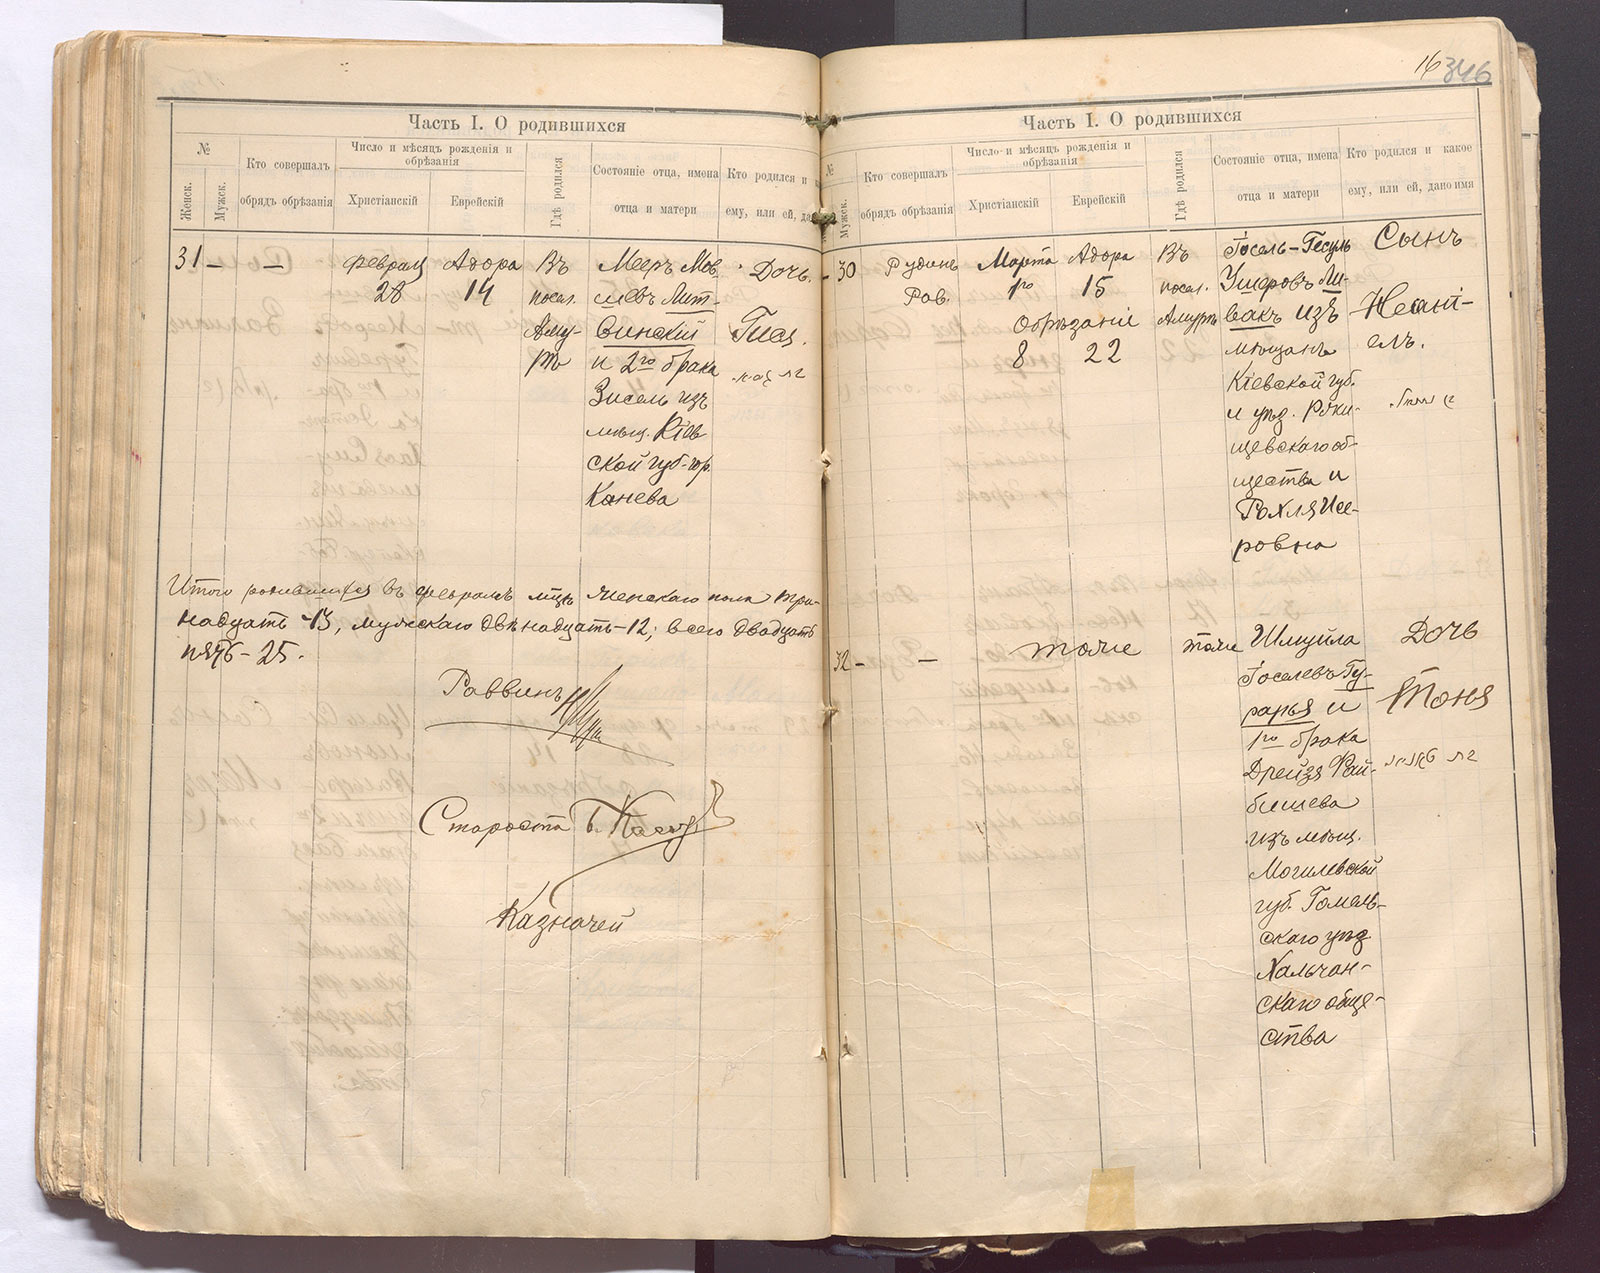 Часть I. О родившихся
№
Женск.
Мужск.
Кто совершалъ
обрядъ обрѣзанія
Число и мѣсяцъ рожденія и
обрѣзанія
Христіанскій
Еврейскій
Гдѣ родился
Состояніе отца, имена
отца и матери
Кто родился и
ему, или ей, да
31 – –
Февраля
28
Адора
14
Въ
посел.
Аму-
рѣ
Мееръ Мов-
шевъ Лит-
винскій
и 2го брака
Зисель изъ
мѣщ. Кіев
ской губ. гор.
Канева
Дочь.
Гися.
Итого родившихся въ феврале мцѣ женскаго пола три-
надцать – 13, мужскаго двѣнадцать – 12; всего двадцать
пять – 25.
Раввинъ
Староста Б.
Казначей
16 346
Часть I. О родившихся
№
Мужск.
Кто совершалъ
обрядъ обрѣзанія
Число и мѣсяцъ рожденія и
обрѣзанія
Христіанскій
Еврейскій
Гдѣ родился
Состояніе отца, имена
отца и матери
Кто родился и какое
ему, или ей, дано имя
– 30
Рудинъ
Рав.
Марта
1го
Адора
15
обрѣзаніе
8 22
Въ
посел.
Амуръ
Іосель-Гесуль
Ушеровъ Ли-
вакъ изъ
мѣщанъ
Кіевской губ.
и уѣз. Роки-
щевскаго об-
щества и
Рохля Исе-
ровна
Сынъ
32 – –
тоже
тоже
Шмуйла
Іоселевъ Гу-
рарья и
1го брака
Дрейзя Фай-
бишева
изъ мѣщ.
Могилевской
губ. Гомель-
скаго уѣз.
Хальчан-
скаго обще-
ства
Дочь
Тоня